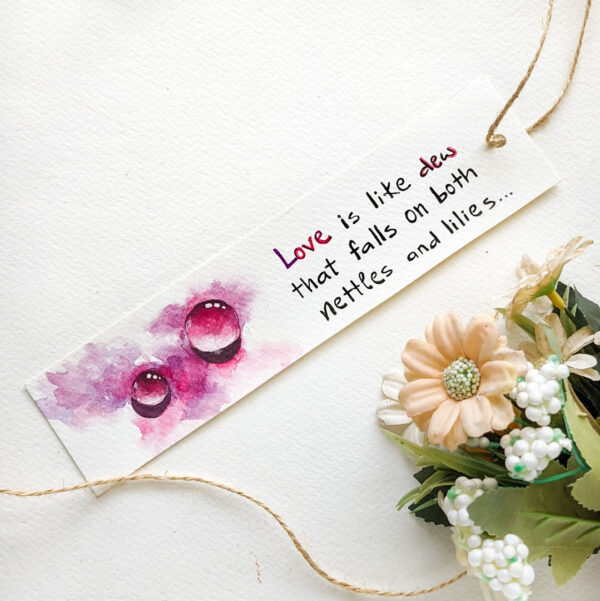 Love is like dew
that falls on both
nettles and lilies...